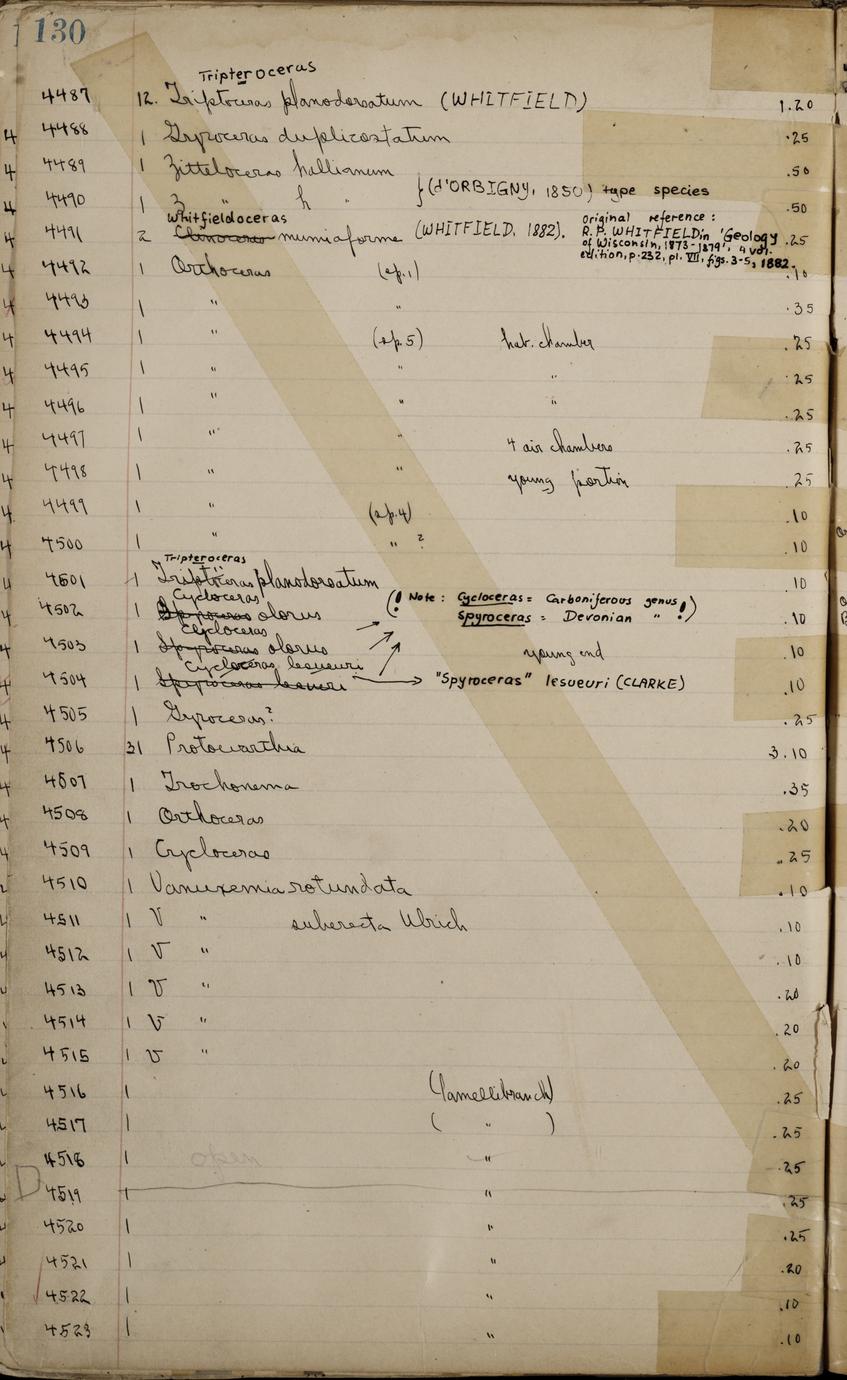 130
Tripteroceras
4487 12. Triptoceras planodorsatum (WHITFIELD) 1.20
4488 1 Gyroceras duplicostatum .25
4489 1 Zitteloceras hallianum .50
}(d'ORBIGNY, 1850) type species
4490 1 Z " h " .50
Whitfieldoceras
4491 2 Clinoceras mumiaforme (WHITFIELD, 1882). .25
Original reference:
R.P. WHITFIELD, in 'Geology
of Wisconsin, 1873-1879', 4 vol.
edition, p.232, pl. VII, figs. 3-5, 1882.
4492 1 Orthoceras (sp.1) .10
4493 1 " " .35
4494 1 " (sp.5) hab. chamber .25
4495 1 " " " .25
4496 1 " " " .25
4497 1 " " 4 air chambers .25
4498 1 " " young portion .25
4499 1 " (sp.4) .10
4500 1 " " ? .10
Tripteroceras
4501 1 Triptoceras planodorsatum .10
Cycloceras
4502 1 Spyroceras olorus .10
(! Note: Cycloceras = Carboniferous genus!)
Spyroceras = Devonian "
Cycloceras
4503 1 Spyroceras olorus young end .10
Cycloceras lesueuri
4504 1 Spyroceras lesueri "Spyroceras" lesueuri (CLARKE) .10
4505 1 Gyroceras? .25
4506 31 Protowarthia 3.10
4507 1 Trochonema .35
4508 1 Orthoceras .20
4509 1 Cycloceras .25
4510 1 Vanuxemia rotundata .10
4511 1 V " suberecta Ulrich .10
4512 1 V " .10
4513 1 V " .20
4514 1 V " .20
4515 1 V " .20
4516 1 (lamellibranch) .25
4517 1 ( " ) .25
4518 1 " .25
4519 1 " .25
4520 1 " .25
4521 1 " .20
4522 1 " .10
4523 1 " .10